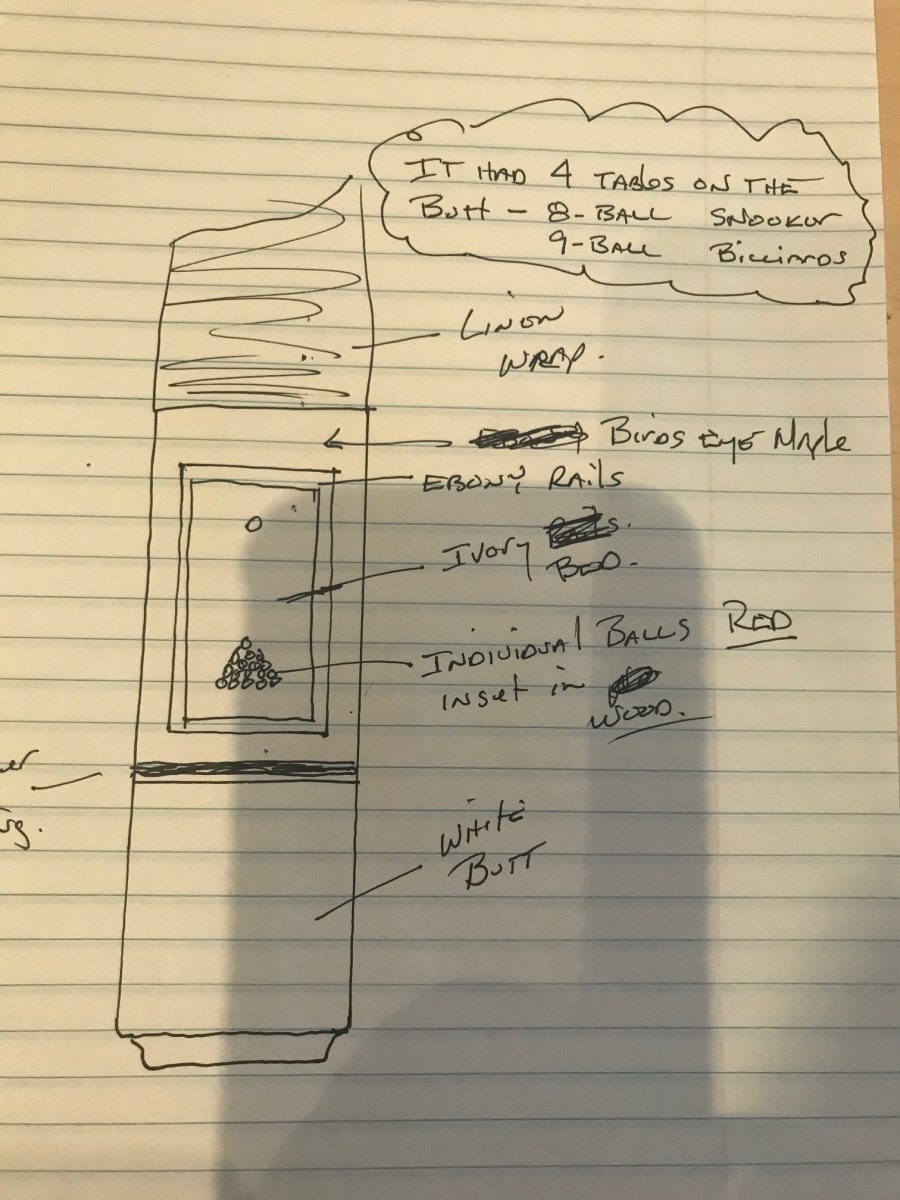 IT HAD 4 TABLES ON THE
BUTT - 8-BALL SNOOKER
9-BALL BILLIARDS
LINEN
WRAP.
BIRDS EYE MAPLE
EBONY RAILS
IVORY
BED.
INDIVIDUAL BALLS RED
INSET IN
WOOD.
WHITE
BUTT